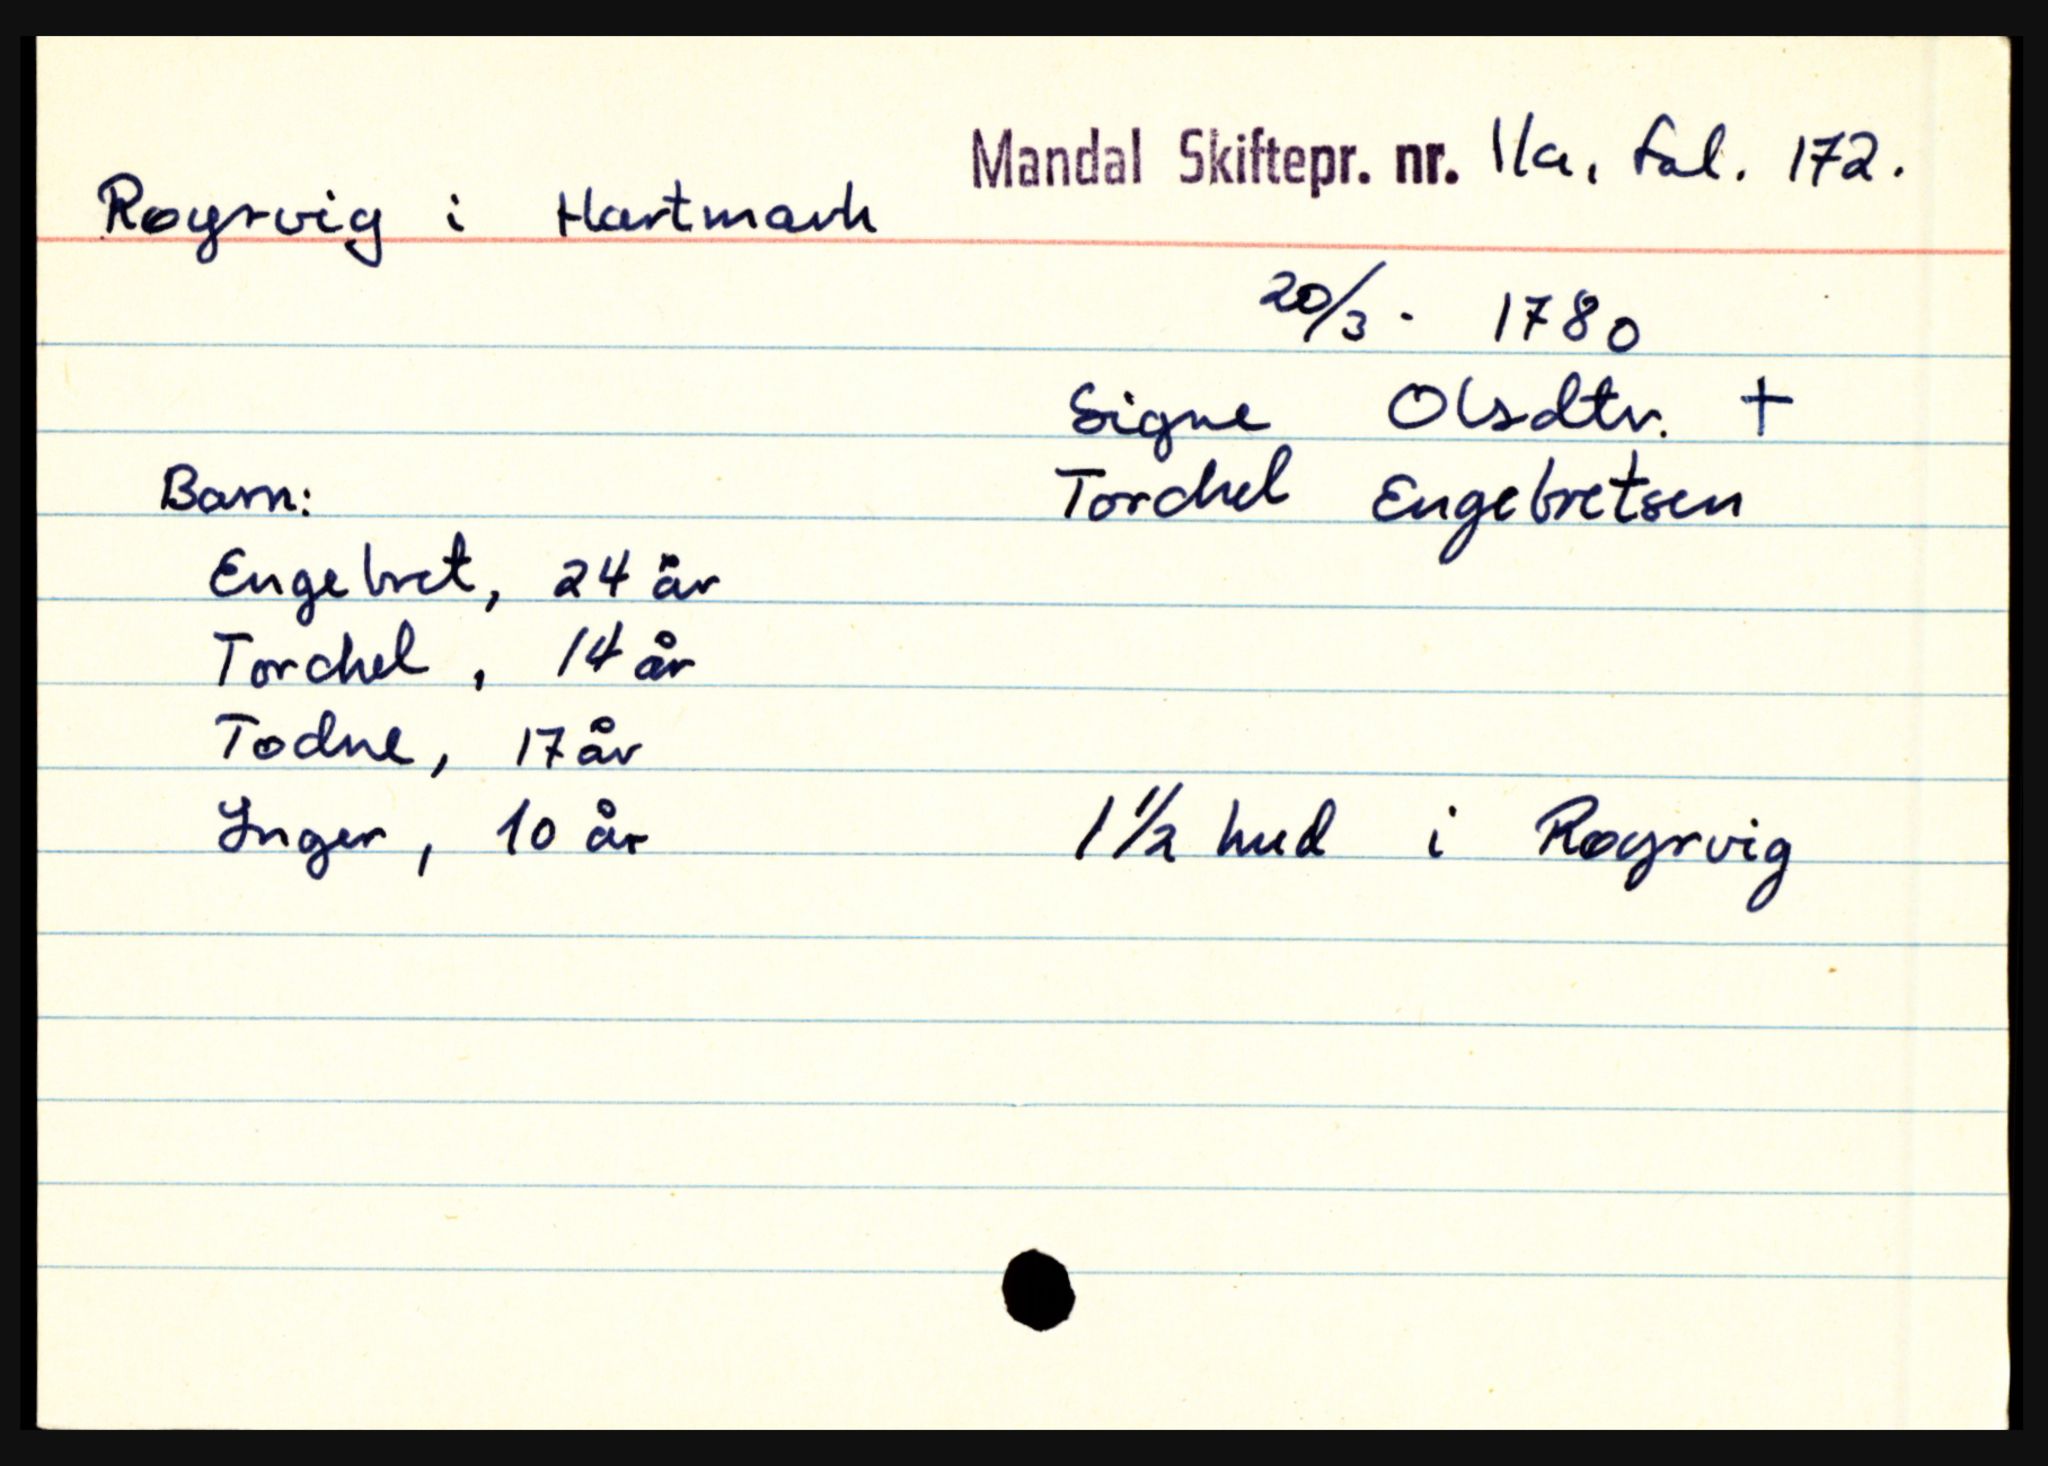 Mandal Skiftepr. nr. 1/a, fol. 172.
Røyrvig i Hartmark
20/3. 1780
Signe Olsdtr. †
Torchel Engebretsen
Barn:
Engebret, 24 år
Torchel, 14 år
Todne, 17 år
Inger, 10 år
1 1/2 hud i Røyrvig